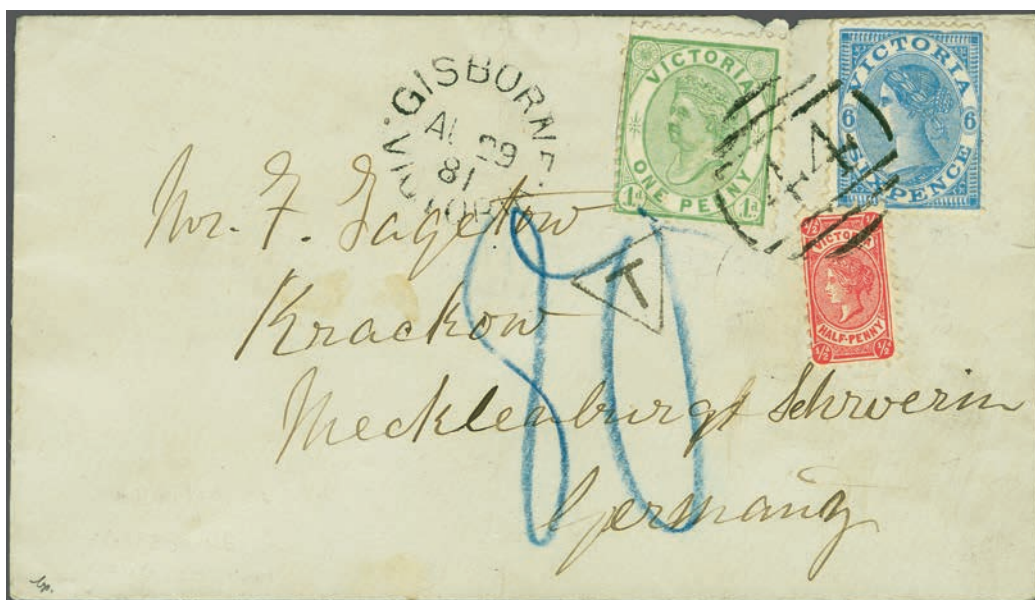 GISBORNE
AU 29
81
VICTORIA
VICTORIA
ONE PENNY
1d 1d
VICTORIA
6 6
SIX PENCE
½ ½
VICTORIA
HALF-PENNY
½ ½
T
80
Mr. F.
Krackow
Mecklenburgh Schwerin
Germany